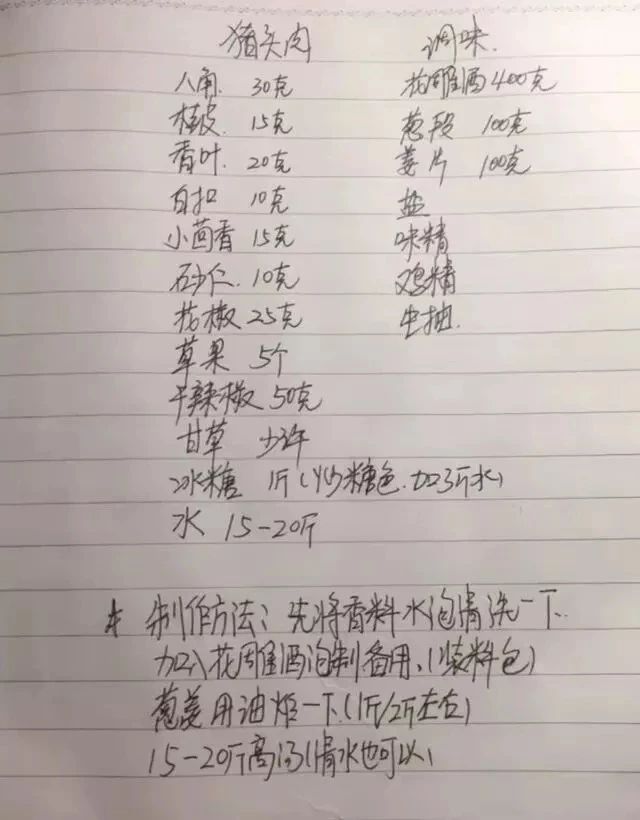 猪头肉 调味
八角 30克 花雕酒400克
桂皮 15克 葱段 100克
香叶 20克 姜片 100克
白扣 10克 盐
小茴香 15克 味精
砂仁 10克 鸡精
花椒 25克 生抽
草果 5个
干辣椒 50克
甘草 少许
冰糖 1斤(炒糖色.加3斤水)
水 15-20斤
制作方法:先将香料水泡清洗一下.
加入花雕酒泡制备用.(装料包)
葱姜用油炸一下.(1斤/2斤左右)
15-20斤高汤(清水也可以)